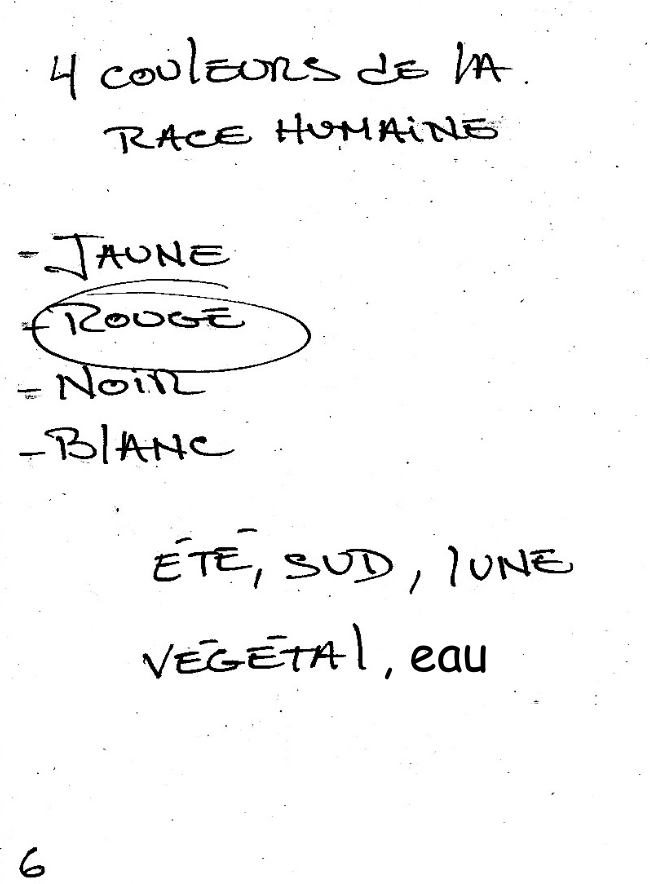 4 COULEURS DE LA
RACE HUMAINE
- JAUNE
- ROUGE
- NOIR
- BLANC
ÉTÉ, SUD, LUNE
VÉGÉTAL, eau
6